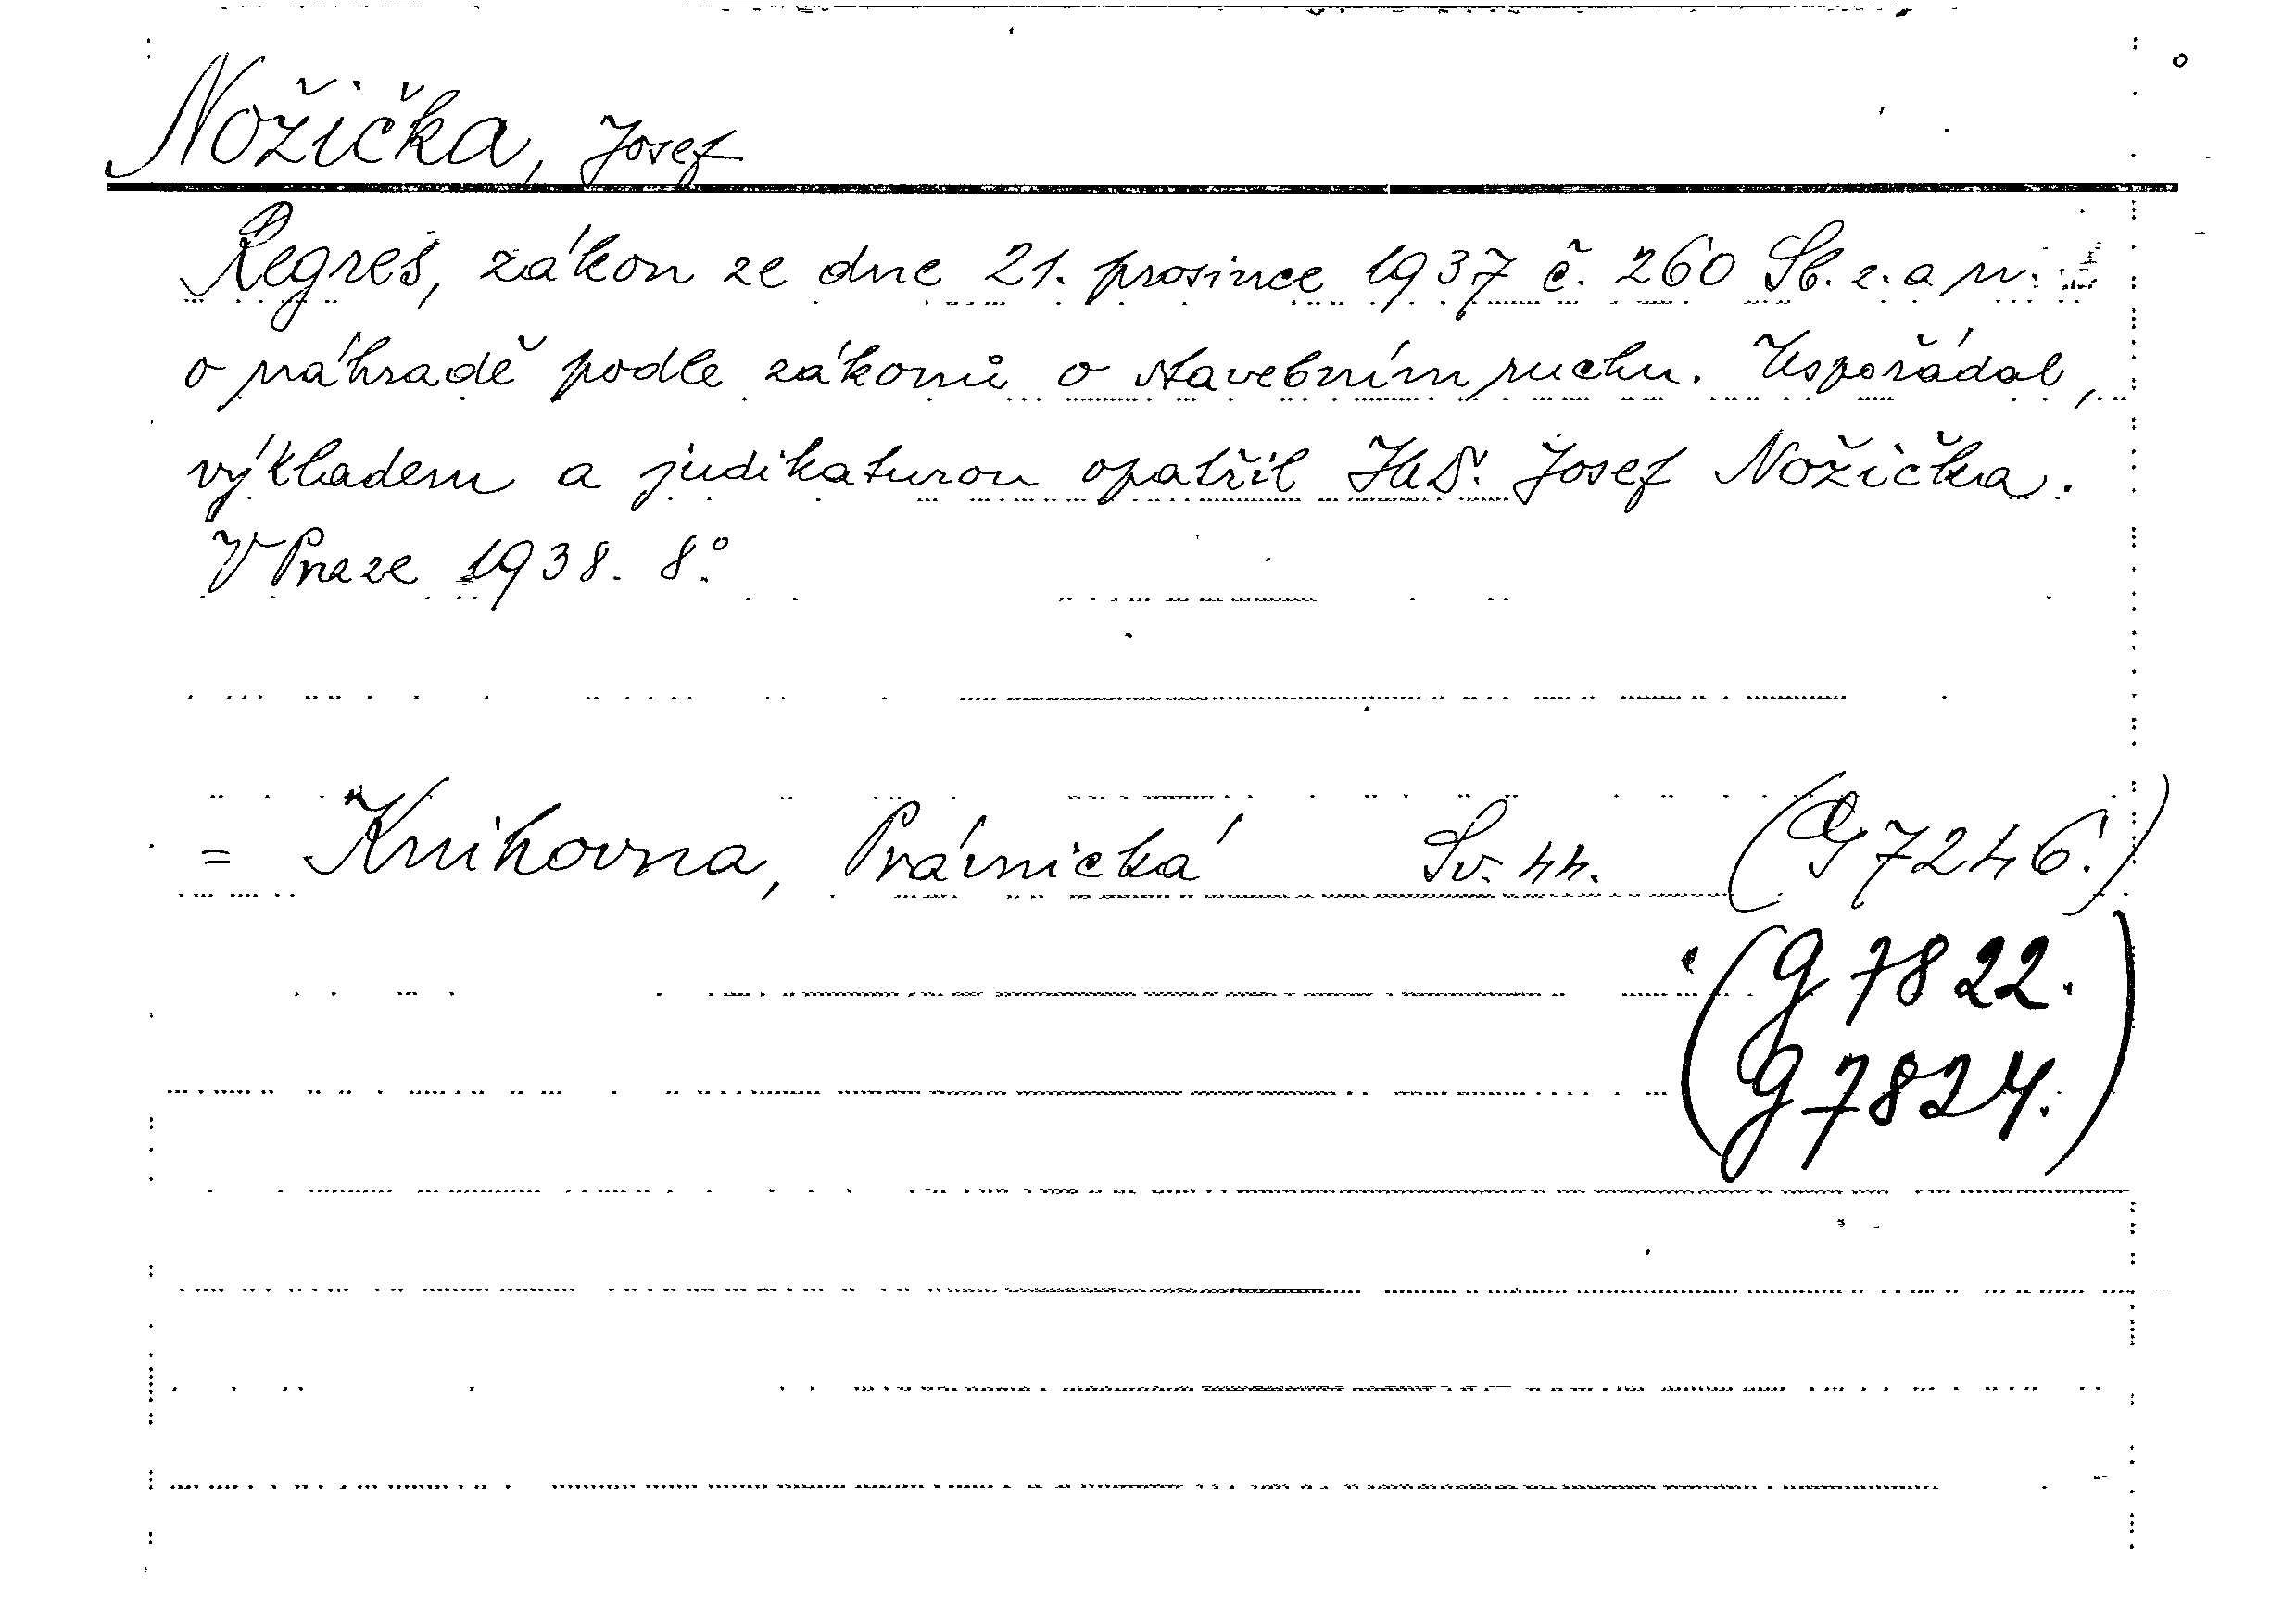 Nožička, Josef
Regres, zákon ze dne 21. prosince 1937 č. 260 Sb. z. a n.
o náhradě podle zákonů o stavebním ruchu. Uspořádal,
výkladem a judikaturou opatřil JUDr. Josef Nožička.
V Praze 1938. 8°.
= Knihovna, Právnická Sv. 44. (G 7246.)
(G 7822.
G 7824.)